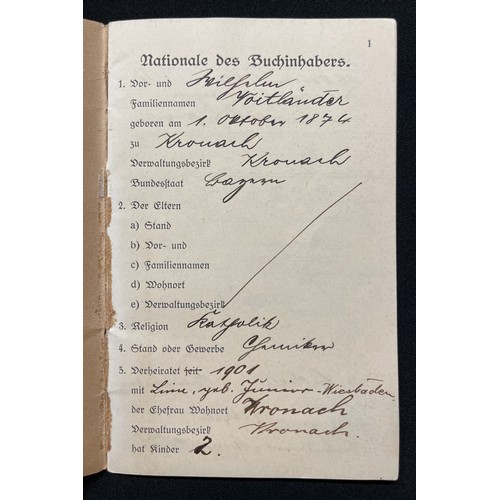 1
Nationale des Buchinhabers.
1. Vor- und Wilhelm
Familiennamen Voitländer
geboren am 1. Oktober 1874
zu Kronach
Verwaltungsbezirk Kronach
Bundesstaat Bayern
2. Der Eltern
a) Stand
b) Vor- und
c) Familiennamen
d) Wohnort
e) Verwaltungsbezirk
3. Religion Katholik
4. Stand oder Gewerbe Chemiker
5. Verheiratet seit 1901
mit Line, geb. Junior-Wiesbaden.
der Ehefrau Wohnort Kronach
Verwaltungsbezirk Kronach.
hat Kinder 2.